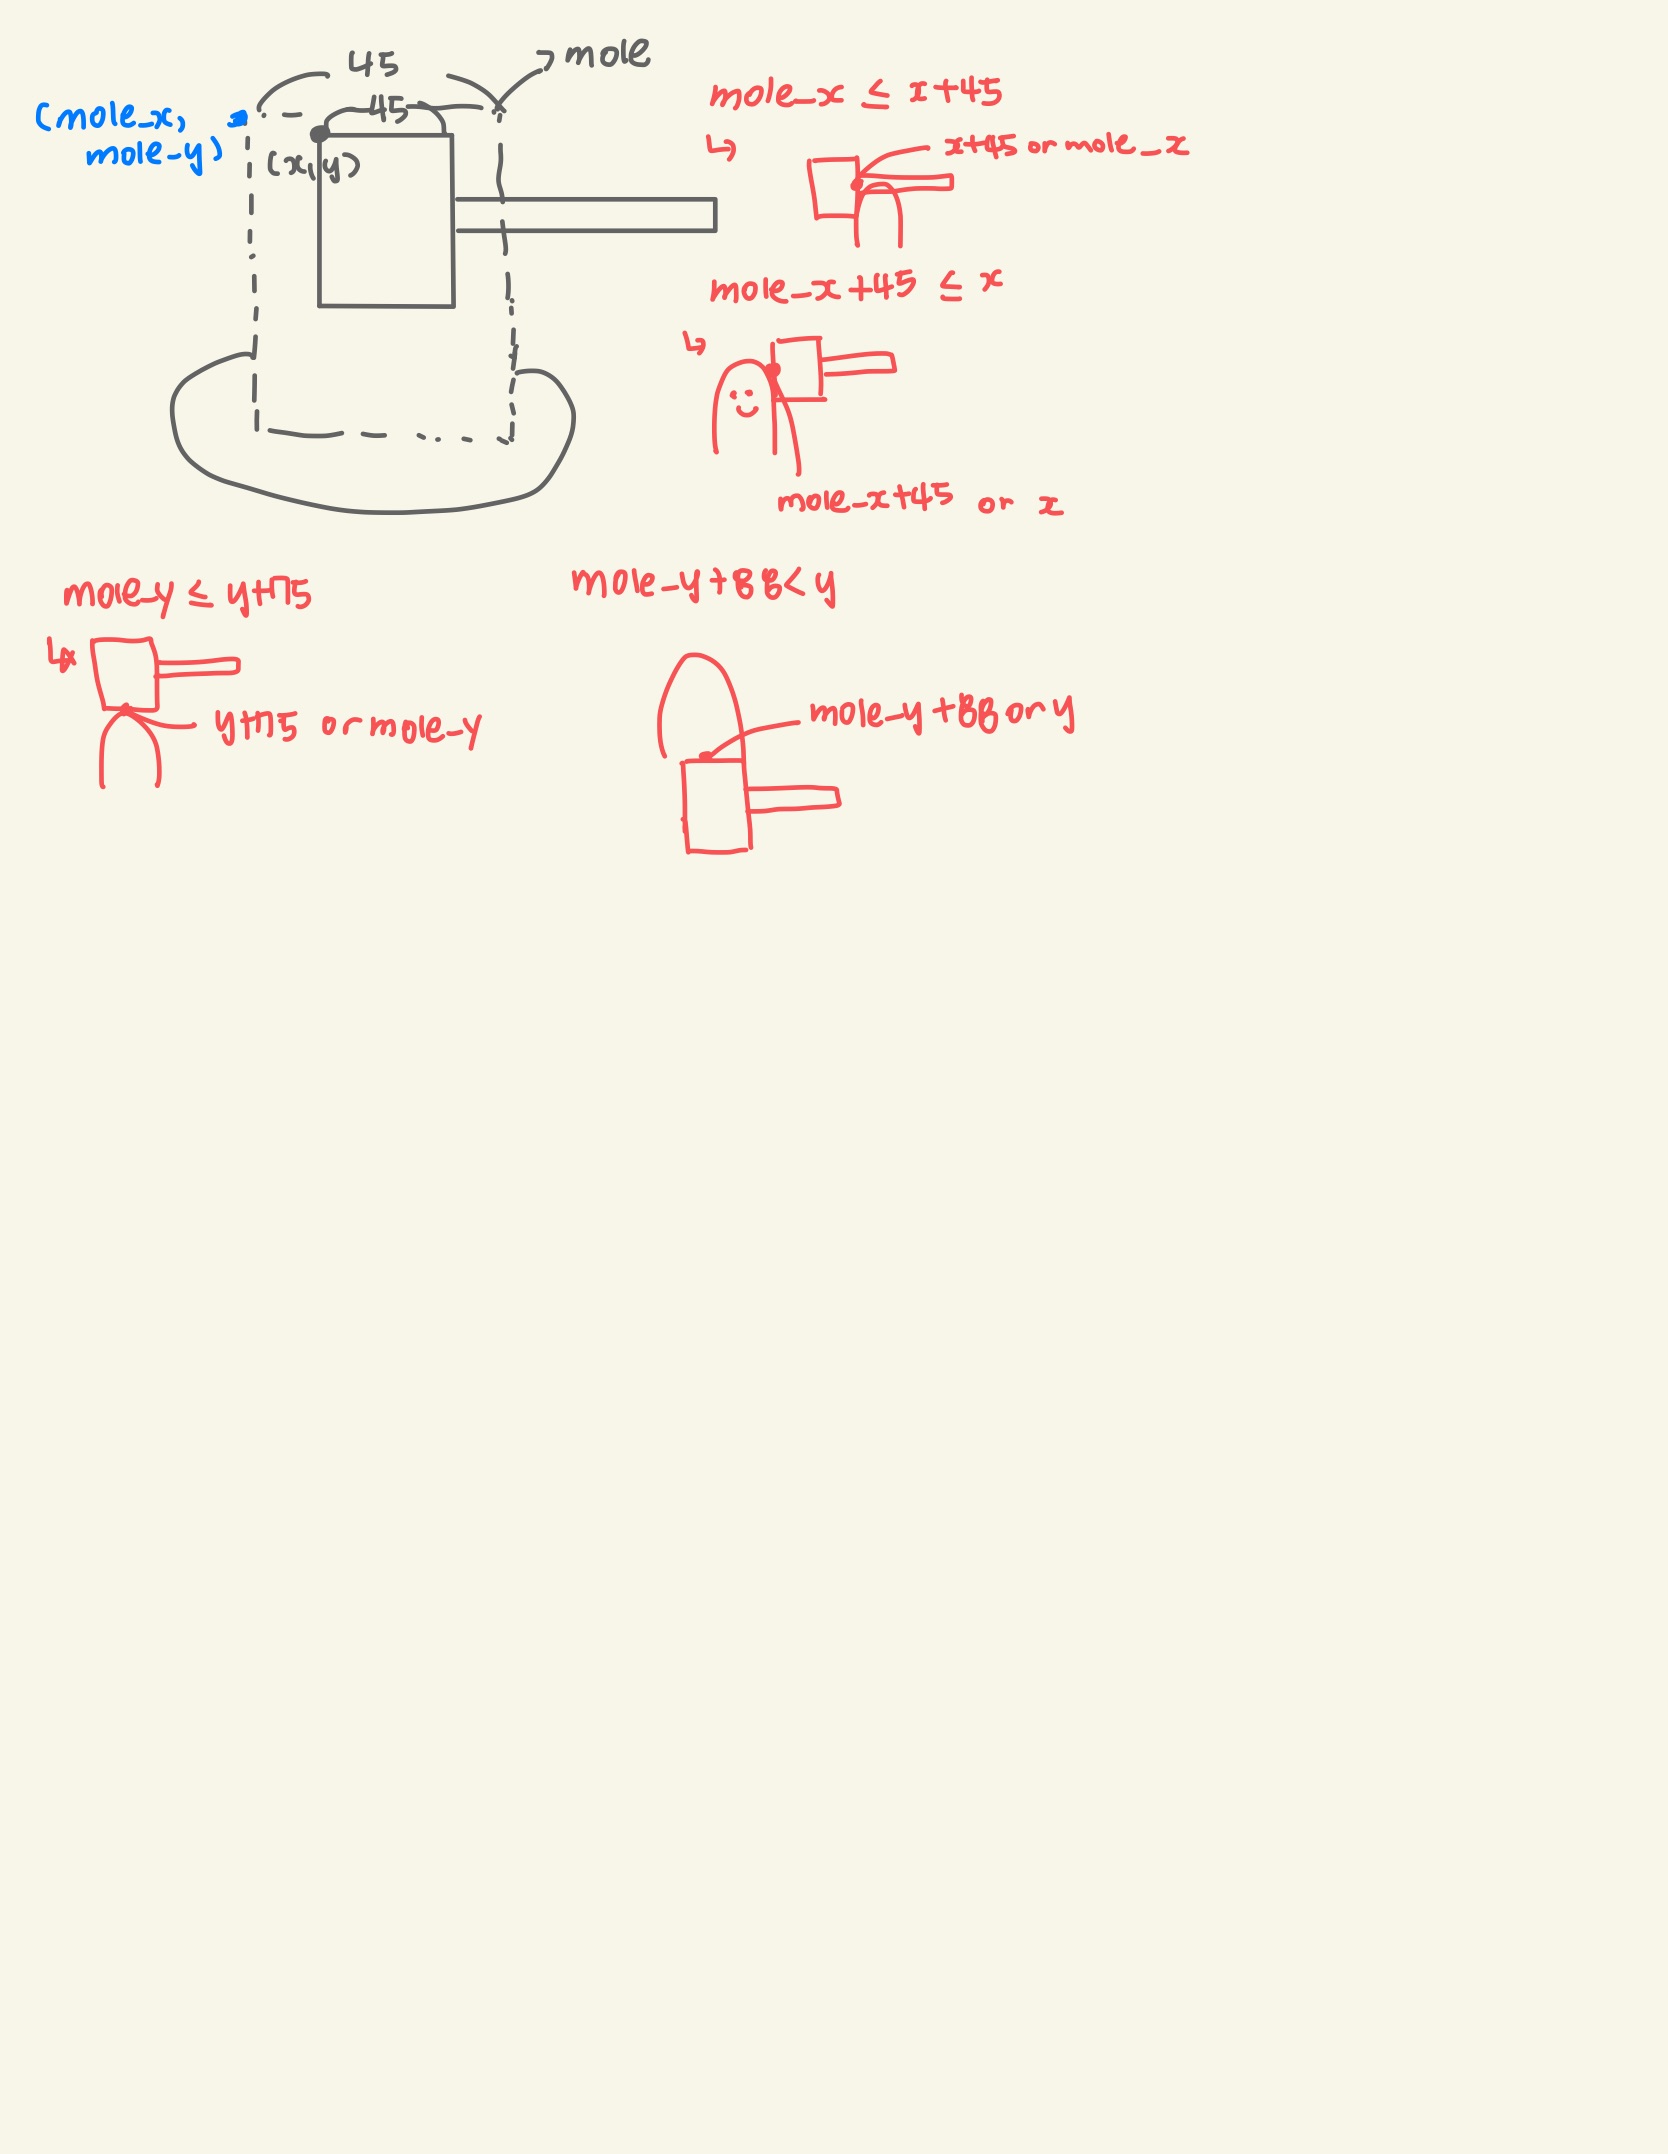 45
mole
45
(mole_x,
mole_y)
(x,y)
mole_x ≤ x+45
x+45 or mole_x
mole_x+45 ≤ x
mole_x+45 or x
mole_y ≤ y+75
y+75 or mole_y
mole_y+88<y
mole_y+88 or y